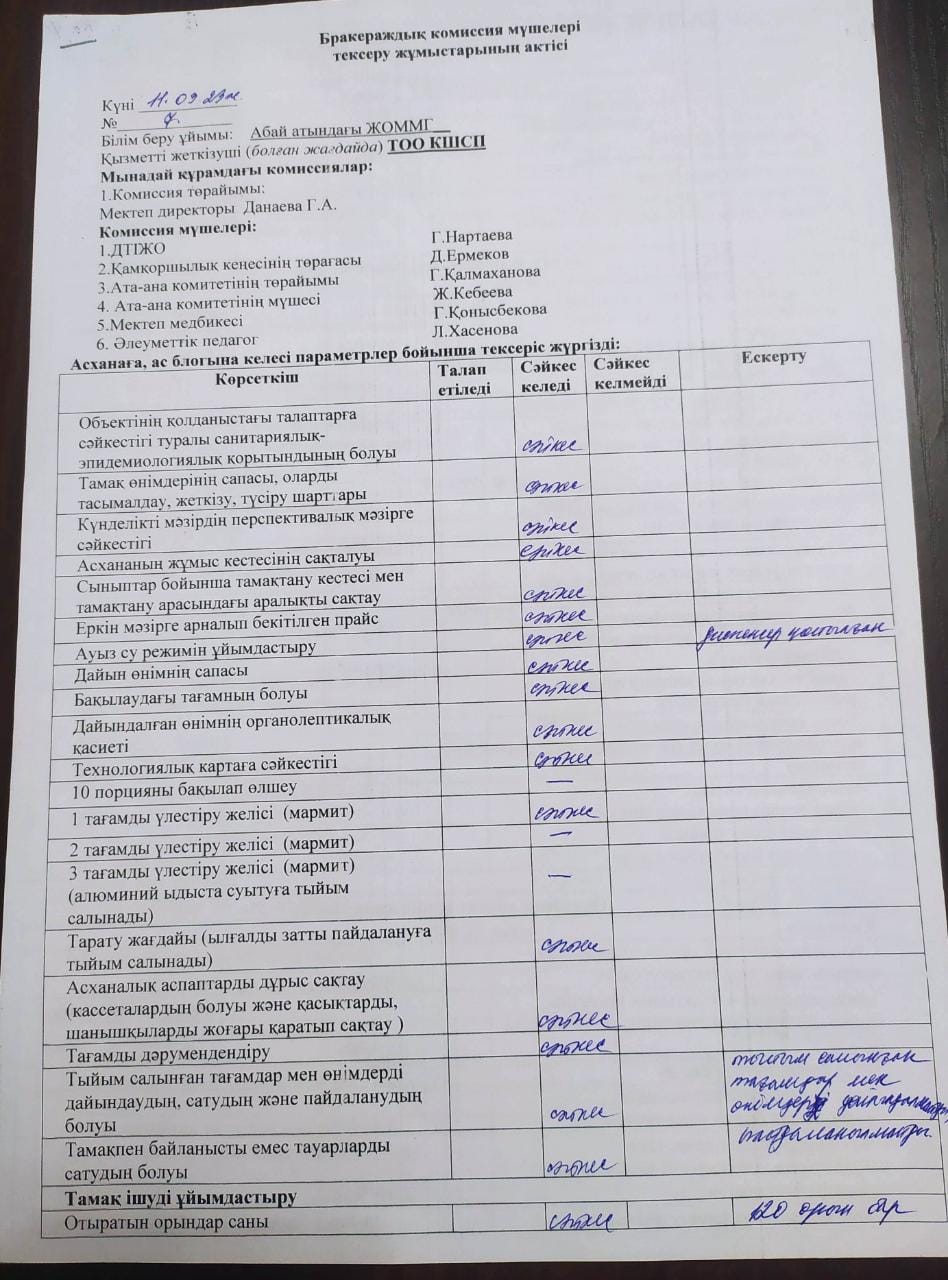 Бракераждық комиссия мүшелері
тексеру жұмыстарының актісі
Күні 11.09.23ж.
№ 7.
Білім беру ұйымы: Абай атындағы ЖОММГ
Қызметті жеткізуші (болған жағдайда) ТОО КШСП
Мынадай құрамдағы комиссиялар:
1.Комиссия төрайымы:
Мектеп директоры Данаева Г.А.
Комиссия мүшелері:
1.ДТІЖО Г.Нартаева
2.Қамқоршылық кеңесінің төрағасы Д.Ермеков
3.Ата-ана комитетінің төрайымы Г.Қалмаханова
4. Ата-ана комитетінің мүшесі Ж.Кебеева
5.Мектеп медбикесі Г.Қонысбекова
6. Әлеуметтік педагог Л.Хасенова
Асханаға, ас блогына келесі параметрлер бойынша тексеріс жүргізді:
Көрсеткіш Талап Сәйкес Сәйкес Ескерту
етіледі келеді келмейді
Объектінің қолданыстағы талаптарға
сәйкестігі туралы санитариялық-
эпидемиологиялық қорытындының болуы сәйкес
Тамақ өнімдерінің сапасы, оларды
тасымалдау, жеткізу, түсіру шарттары сәйкес
Күнделікті мәзірдің перспективалық мәзірге
сәйкестігі сәйкес
Асхананың жұмыс кестесінің сақталуы сәйкес
Сыныптар бойынша тамақтану кестесі мен
тамақтану арасындағы аралықты сақтау сәйкес
Еркін мәзірге арналып бекітілген прайс сәйкес
Ауыз су режимін ұйымдастыру сәйкес диспенсер қойылған
Дайын өнімнің сапасы сәйкес
Бақылаудағы тағамның болуы сәйкес
Дайындалған өнімнің органолептикалық
қасиеті сәйкес
Технологиялық картаға сәйкестігі сәйкес
10 порцияны бақылап өлшеу —
1 тағамды үлестіру желісі (мармит) сәйкес
2 тағамды үлестіру желісі (мармит) —
3 тағамды үлестіру желісі (мармит)
(алюминий ыдыста суытуға тыйым —
салынады)
Тарату жағдайы (ылғалды затты пайдалануға
тыйым салынады) сәйкес
Асханалық аспаптарды дұрыс сақтау
(кассеталардың болуы және қасықтарды,
шанышқыларды жоғары қаратып сақтау ) сәйкес
Тағамды дәрумендендіру сәйкес
Тыйым салынған тағамдар мен өнімдерді тыйым салынған
дайындаудың, сатудың және пайдаланудың тағамдар мен
болуы сәйкес өнімдер
Тамақпен байланысты емес тауарларды
сатудың болуы сәйкес
Тамақ ішуді ұйымдастыру
Отыратын орындар саны сәйкес 120 орын бар